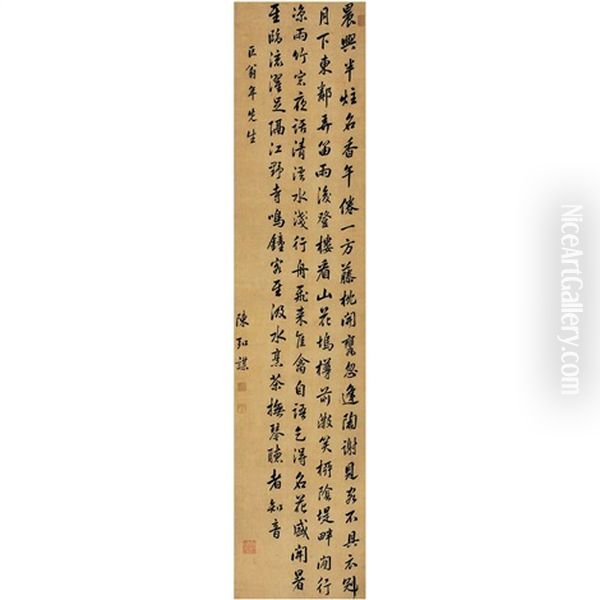 晨興半炷名香午倦一方藤枕開甕忽逢陶謝見客不具衣冠
月下東鄰弄笛雨後登樓看山花塢樽前微笑柳陰堤畔閒行
涼雨竹窓夜話清溪水淺行舟飛來佳禽自語乞得名花盛開暑
至臨流濯足隔江野寺鳴鐘客至汲水烹茶撫琴聽者知音
匡翁年先生
陳弘謀
NiceArtGallery.com